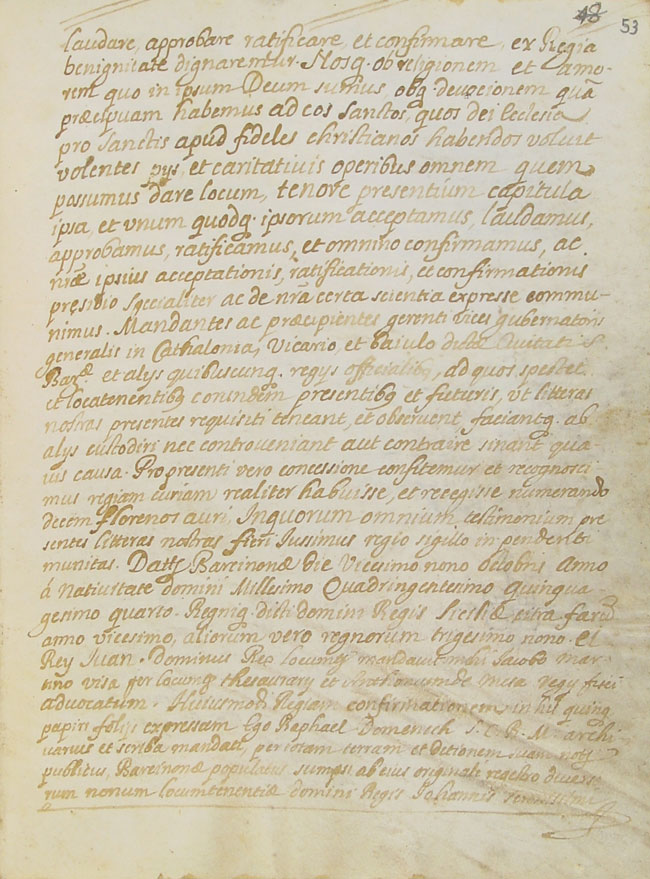 48 53
laudare, approbare ratificare, et confirmare, ex Regia
benignitate dignaremur. Nosq. ob religionem et amo-
rem quo in ipsum Deum sumus, obq. devocionem quã
præcipuam habemus ad eos Sanctos, quos dei Ecclesia
pro Sanctis apud fideles christianos habendos voluit
volentes pijs, et caritativis operibus omnem quem
possumus dare locum, tenore presentium capitula
ipsa, et vnum quodq. ipsorum acceptamus, laudamus,
approbamus, ratificamus, et omnino confirmamus, ac
nr̃æ ipsius acceptationis, ratificationis, et confirmationis
præsidio specialiter ac de nr̃a certa scientia expresse commu-
nimus. Mandantes ac præcipientes gerenti vices gubernatoris
generalis in Cathalonia, Vicario, et baiulo dictæ Civitatis
Barª. et alijs quibuscunq. regijs officialibq, ad quos spectet
et locatenentibq eorundem presentibq et futuris, vt litteras
nostras presentes requisiti teneant, et observent, faciantq. ab
alijs custodiri nec controveniant aut contraire sinant qua-
vis causa. Pro presenti vero concessione confitemur et recognosci
mus regiam curiam realiter habuisse, et recepisse numerando
decem florenos auri, Inquorum omnium testimonium pre
sentes litteras nostras fieri Iussimus regio sigillo inpendenti
munitas. Datt. Barcinonæ die Vicesimo nono octobris Anno
á Nativitate domini Millesimo Quadringentesimo Quinqua-
gesimo quarto. Regniq. dicti domini Regis Siciliæ citra farũ
anno vicesimo, aliorum vero regnorum trigesimo nono. El
Rey Iuan. Dominus Rex locumtẽ mandavit mihi Iacobo mar-
tino visa per locumq thesaurary et Anthonium de Mesa regij fisci
advocatum. Huiusmodi Regiam confirmationem in his quinq
papiri folijs expressam Ego Raphael Domenech S. C. R. M. archi-
varius et scriba mandati, per totam terram et ditionem suam notꝰ
publicus, Barcinonæ populatus sumpsi ab eius originali regestro diverso-
rum nonum locumtenentiæ domini Regis Iohannis